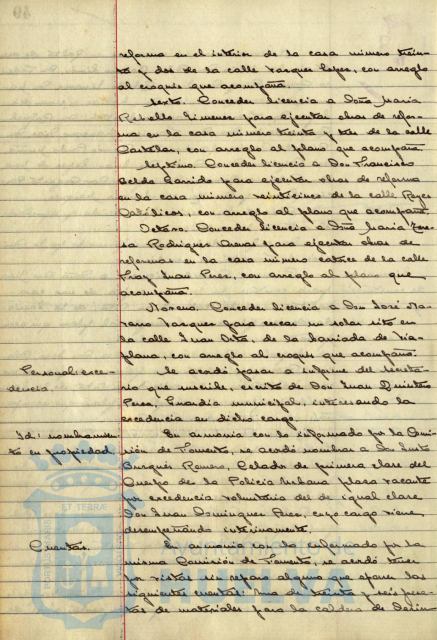 reforma en el interior de la casa número trein-
ta y dos de la calle Vazquez Lopez, con arreglo
al croquis que acompaña.
Sexto. Conceder licencia a Doña Maria
Rebollo Jimenez para ejecutar obras de refor-
ma en la casa número treinta y tres de la calle
Castelar, con arreglo al plano que acompaña.
Septimo. Conceder licencia a Don Francisco
Garrido para ejecutar obras de reforma
en la casa número veinticinco de la calle Reyes
Católicos, con arreglo al plano que acompaña.
Octavo. Conceder licencia a Doña Maria Tere-
sa Rodriguez para ejecutar obras de
reformas en la casa número catorce de la calle
Fray Juan Perez, con arreglo al plano que
acompaña.
Noveno. Conceder licencia a Don José Na-
varro Vazquez para cercar un solar sito en
la calle Juan de la barriada de Via-
plana, con arreglo al croquis que acompaña.
Personal: exce-
dencia.
Se acordó pasar a informe del Secreta-
rio que suscribe, escrito de Don Juan Quintero
Perez, Guardia municipal, interesando la
excedencia en dicho cargo.
Id: nombramien-
to en propiedad.
En armonia con lo informado por la Comi-
sión de Fomento, se acordó nombrar a Don
Romero, Celador de primera clase del
Cuerpo de la Policia Urbana plaza vacante
por excedencia voluntaria del de igual clase
Don Juan Dominguez cuyo cargo viene
desempeñando interinamente.
Cuentas.
En armonia con lo informado por la
misma Comisión de Fomento, se acordó tener
por vistas sin reparo alguno que oponer las
siguientes cuentas: Una de treinta y seis pese-
tas de materiales para la caldera de Desin-
ET TERRAE